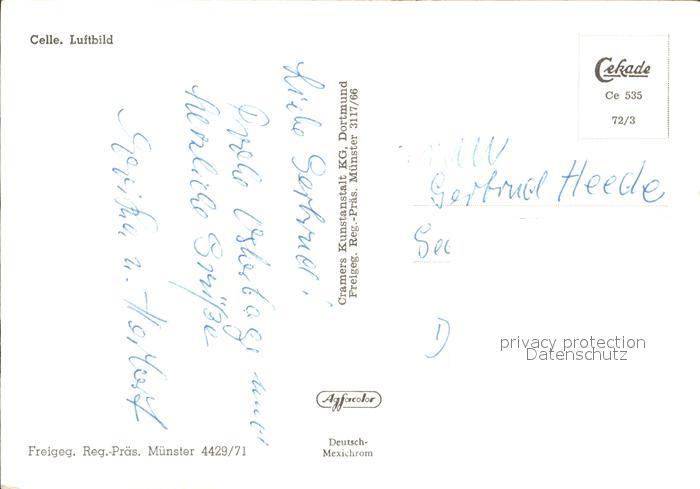 Celle. Luftbild
Liebe Gertrud!
Frohe Ostertage und
herzliche Grüße
u. Herbert
Cramers Kunstanstalt KG, Dortmund
Freigeg. Reg.-Präs. Münster 3117/66
Cekade
Ce 535
72/3
Gertrud Heede
privacy protection
Datenschutz
Agfacolor
Deutsch-
Mexichrom
Freigeg. Reg.-Präs. Münster 4429/71